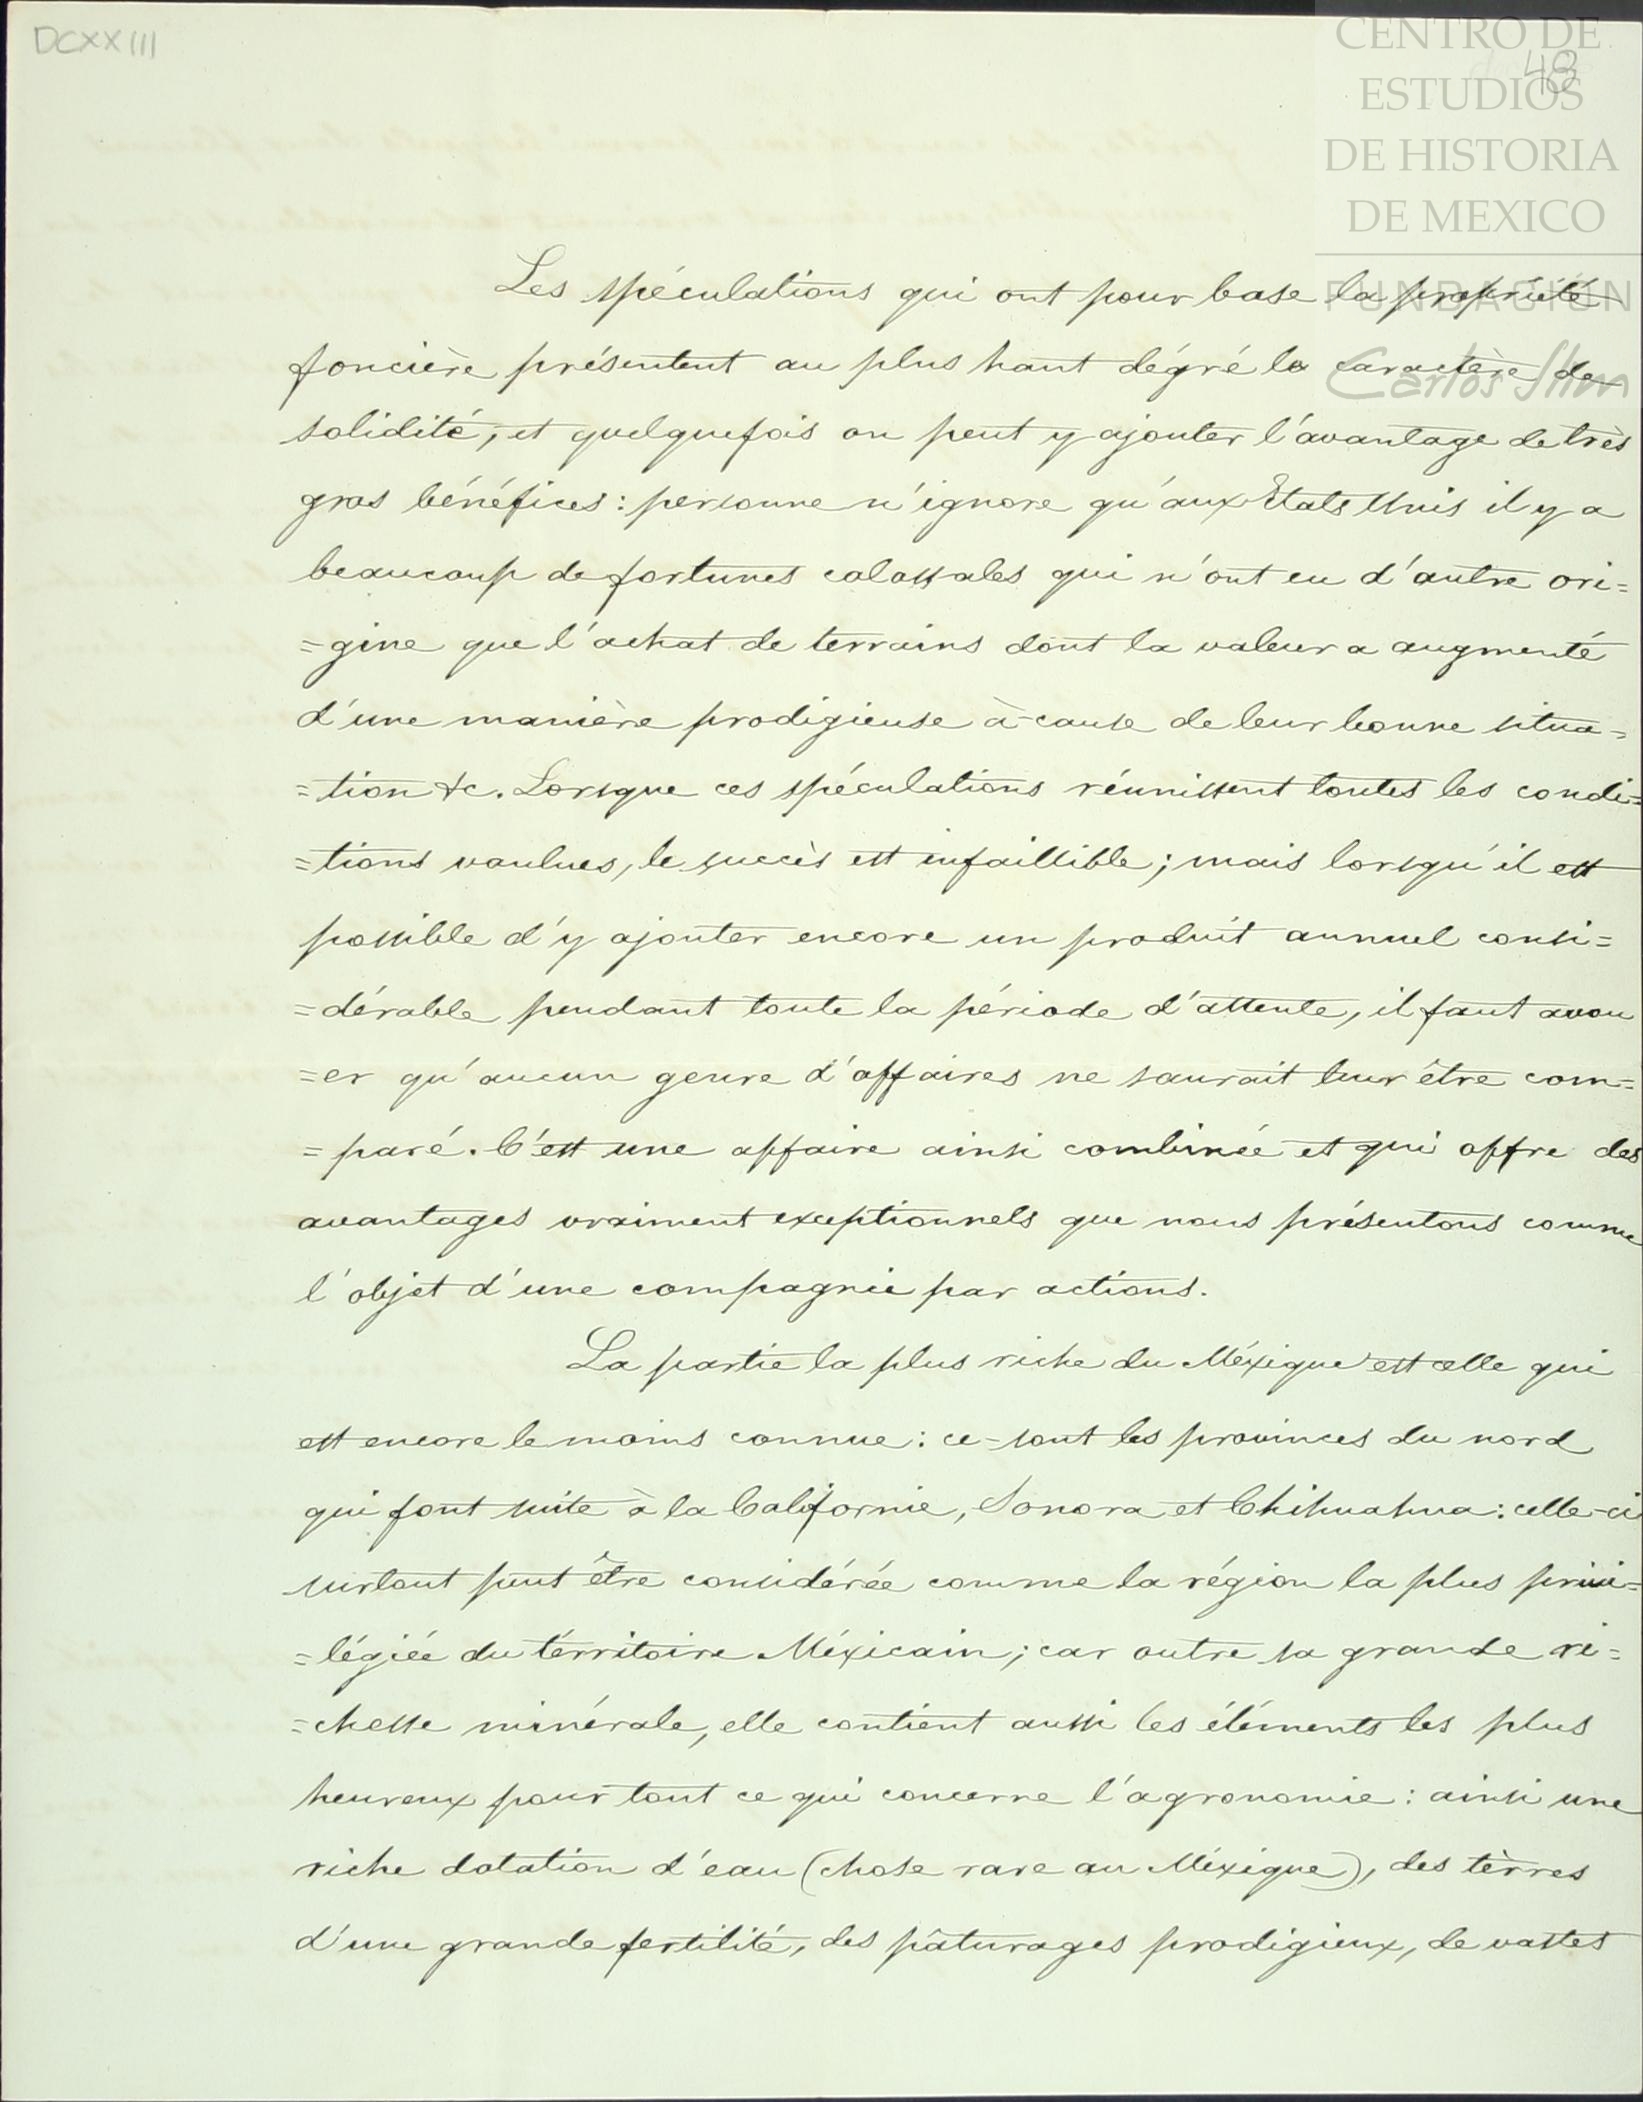 DCXXIII
48
CENTRO DE
ESTUDIOS
DE HISTORIA
DE MEXICO
FUNDACIÓN
Carlos Slim
Les spéculations qui ont pour base la propriété
foncière présentent au plus haut dégré le caractère de
solidité, et quelquefois on peut y ajouter l'avantage de très
gros bénéfices: personne n'ignore qu'aux Etats Unis il y a
beaucoup de fortunes colossales qui n'ont eu d'autre ori=
=gine que l'achat de terrains dont la valeur a augmenté
d'une manière prodigieuse à cause de leur bonne situa=
=tion &c. Lorsque ces spéculations réunissent toutes les condi=
=tions voulues, le succès est infaillible; mais lorsqu'il est
possible d'y ajouter encore un produit annuel consi=
=dérable pendant toute la période d'attente, il faut avou
=er qu'aucun genre d'affaires ne saurait leur être com=
=paré. C'est une affaire ainsi combinée et qui offre des
avantages vraiment exceptionnels que nous présentons comme
l'objet d'une compagnie par actions.
La partie la plus riche du Méxique est celle qui
est encore le moins connue: ce-sont les provinces du nord
qui font suite à la Californie, Sonora et Chihuahua: celle-ci
surtout peut être considérée comme la région la plus privi=
=légiée du térritoire Méxicain; car outre sa grande ri=
=chesse minérale, elle contient aussi les éléments les plus
heureux pour tout ce qui concerne l'agronomie: ainsi une
riche dotation d'eau (chose rare au Méxique), des tèrres
d'une grande fertilité, des pâturages prodigieux, de vastes